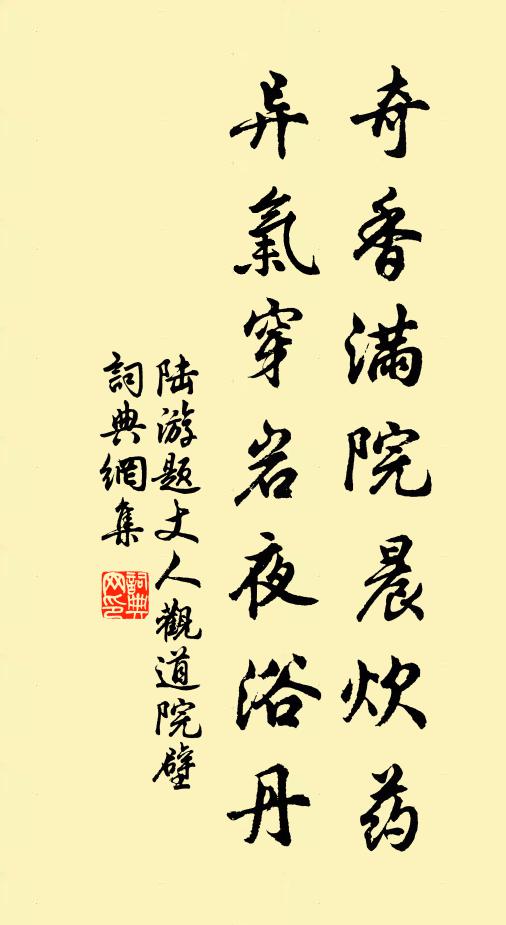 奇香满院晨炊药
异氣穿岩夜浴丹
陆游题丈人觀道院壁
詞典網集
詞典网印